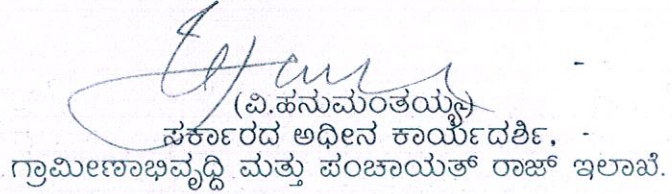 (ವಿ.ಹನುಮಂತಯ್ಯ)
ಸರ್ಕಾರದ ಅಧೀನ ಕಾರ್ಯದರ್ಶಿ,
ಗ್ರಾಮೀಣಾಭಿವೃದ್ಧಿ ಮತ್ತು ಪಂಚಾಯತ್ ರಾಜ್ ಇಲಾಖೆ.